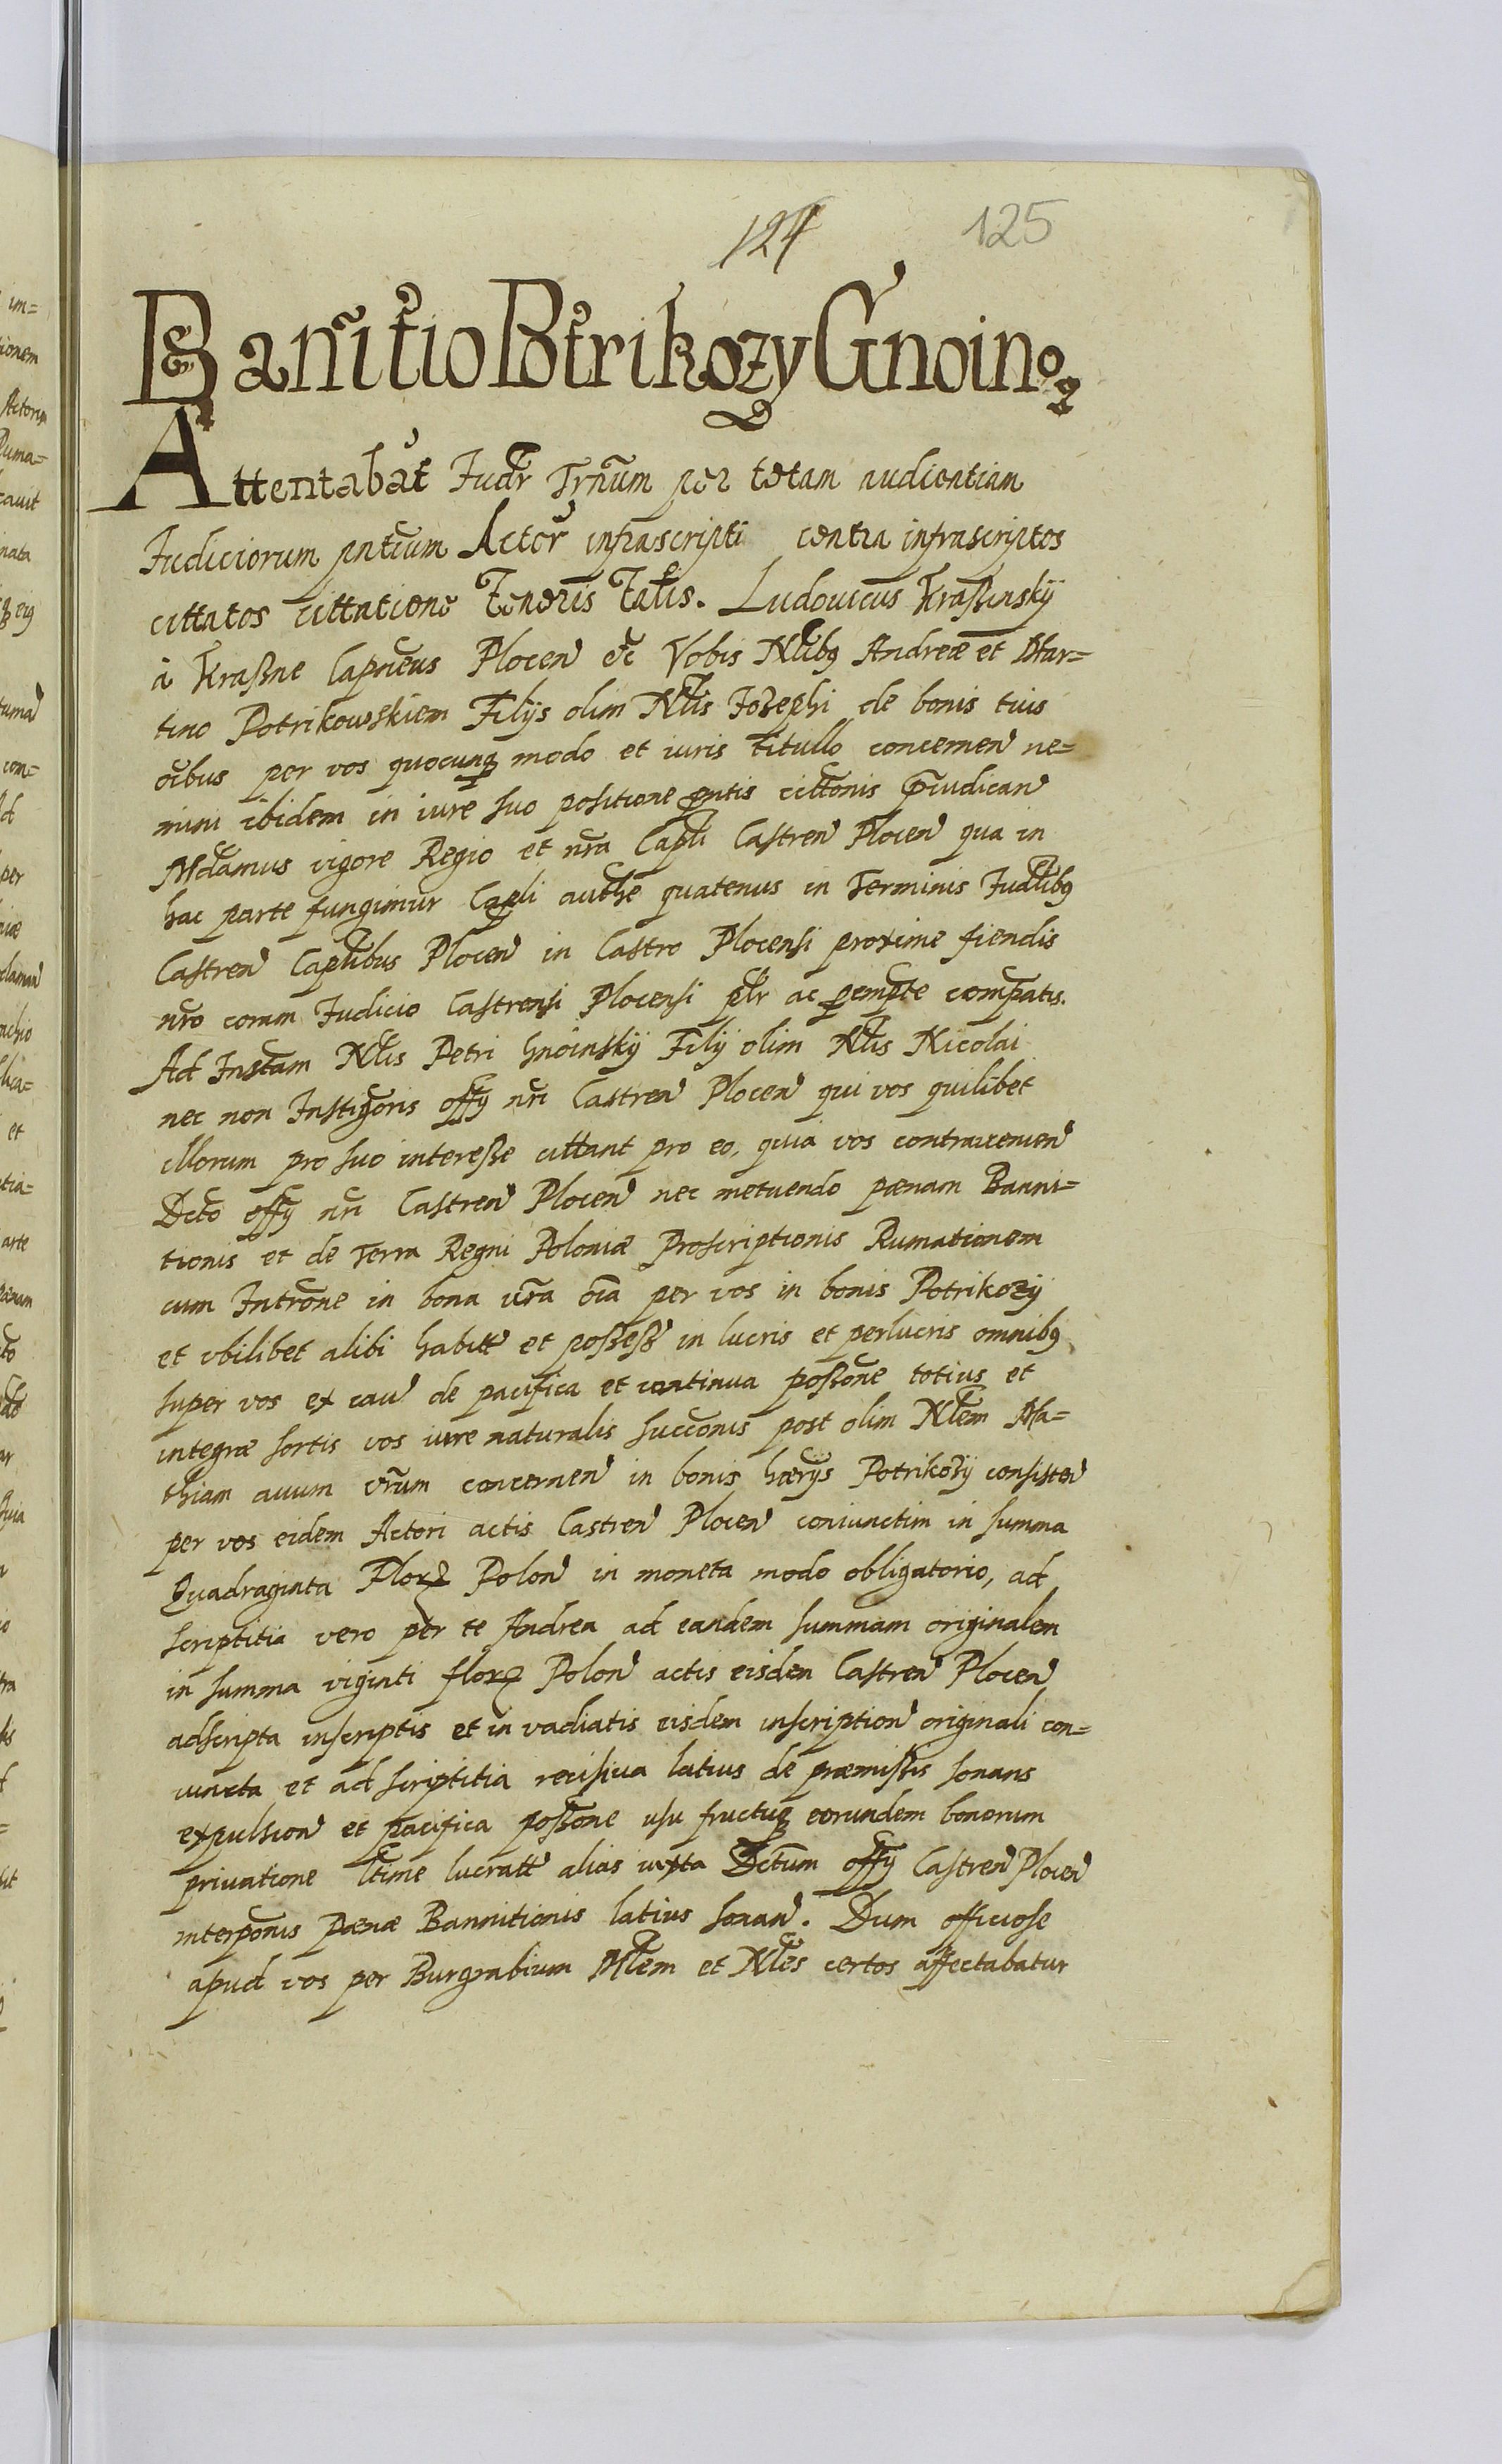 124 125
Bannitio Potrikozy Gnoinoꝗ
Attentabat Judr Trnum per totam audientiam
Judiciorum pntium Actor infrascripti contra infrascriptos
cittatos cittatione Tenoris Talis. Ludovicus Kraßinskÿ
à Kraßne Capneus Plocen etc Vobis Nlibꝰ Andreæ et Mar=
tino Potrikowskiem Filÿs olim Nlis Josephi de bonis tuis
oibus per vos quocunꝗ modo et iuris titullo concernen ne=
mini ibidem in iure suo positione pntis cittonis præiudican
Mdamus vigore Regio et nra Capli Castren Plocen qua in
hac parte fungimur Capli authe quatenus in Terminis Judlibꝰ
Castren Caplibus Plocen in Castro Plocensi proxime fiendis
nro coram Judicio Castrensi Plocensi plr ac pempte compatis.
Ad Instam Nlis Petri Gnoinskÿ Filÿ olim Nlis Nicolai
nec non Instigoris offÿ nri Castren Plocen qui vos quilibet
illorum pro suo intereße cittant pro eo, quia vos contravenien
Dcto offÿ nri Castren Plocen nec metuendo pænam Banni=
tionis et de Terra Regni Poloniæ Proscriptionis Rumationem
cum Introne in bona vra oia per vos in bonis Potrikozÿ
et ubilibet alibi habitt et poßeß in lucris et perlucris omnibꝰ
super vos ex cau de pacifica et continua poßone totius et
integræ sortis vos iure naturalis succonis post olim Nlem Ma=
thiam auum vrum concernen in bonis hærÿs Potrikozÿ consisten
per vos eidem Actori actis Castren Plocen coniunctim in summa
Quadraginta Florꝝ Polon in moneta modo obligatorio, ad
scriptitia vero per te Andrea ad eandem summam originalem
in summa viginti florꝝ Polon actis eisdem Castren Plocen
adscripta inscriptis et in vadiatis eisdem inscription originali con=
iuncta et ad scriptitia recisiua latius de præmißis sonans
expulsion et pacifica poßone usu fructuꝗ eorundem bonorum
priuatione ltime lucratt alias iuxta Dctum offÿ Castren Plocen
interponis pænæ Bannitionis latius sonan. Dum officiose
apud vos per Burgrabium Mlem et Nles certos affectabatur